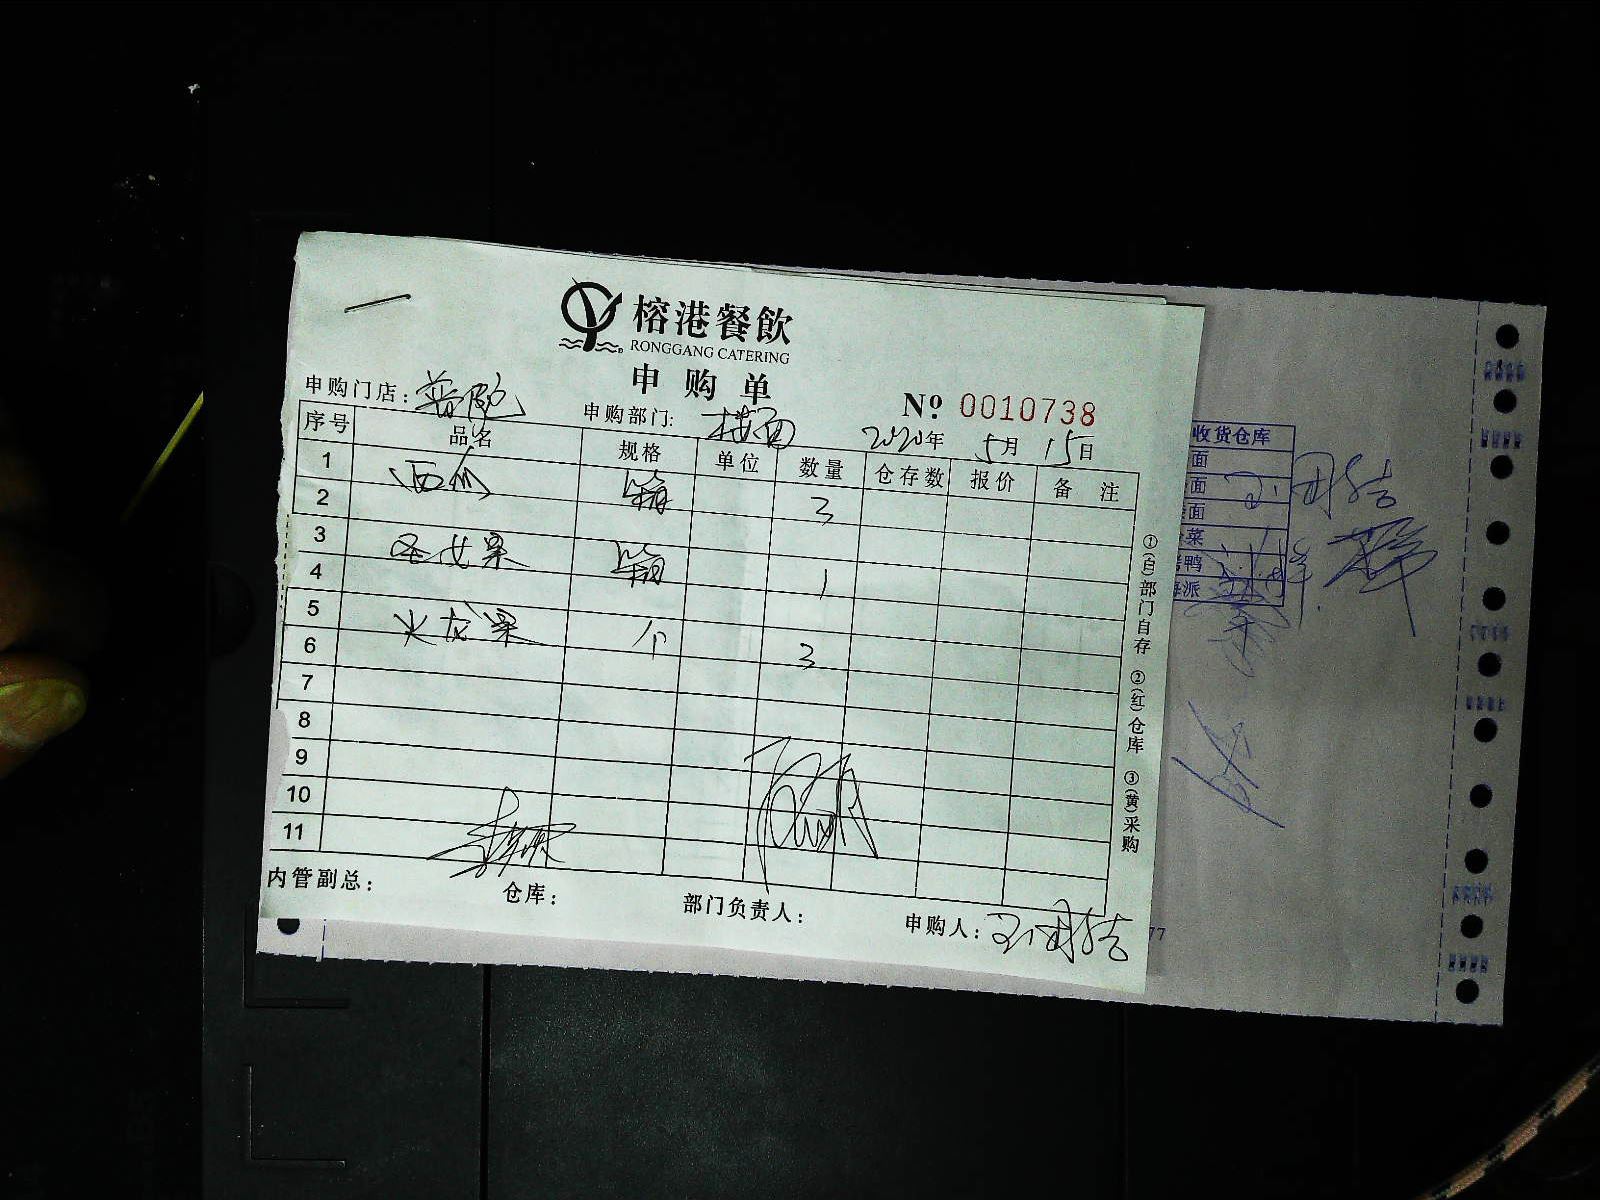 榕港餐飲
RONGGANG CATERING
申购单
申购门店: 普陀 申购部门: 楼面 № 0010738
2020年 5月 15日
序号 品名 规格 单位 数量 仓存数 报价 备注
1 西瓜 箱 3
2
3 圣女果 箱 1
4
5 火龙果 个 3
6
7
8
9
10
11
内管副总: 仓库: 部门负责人: 申购人:
①(白)部门自存 ②(红)仓库 ③(黄)采购
收货仓库
面
面
面
菜
鸭
派
77